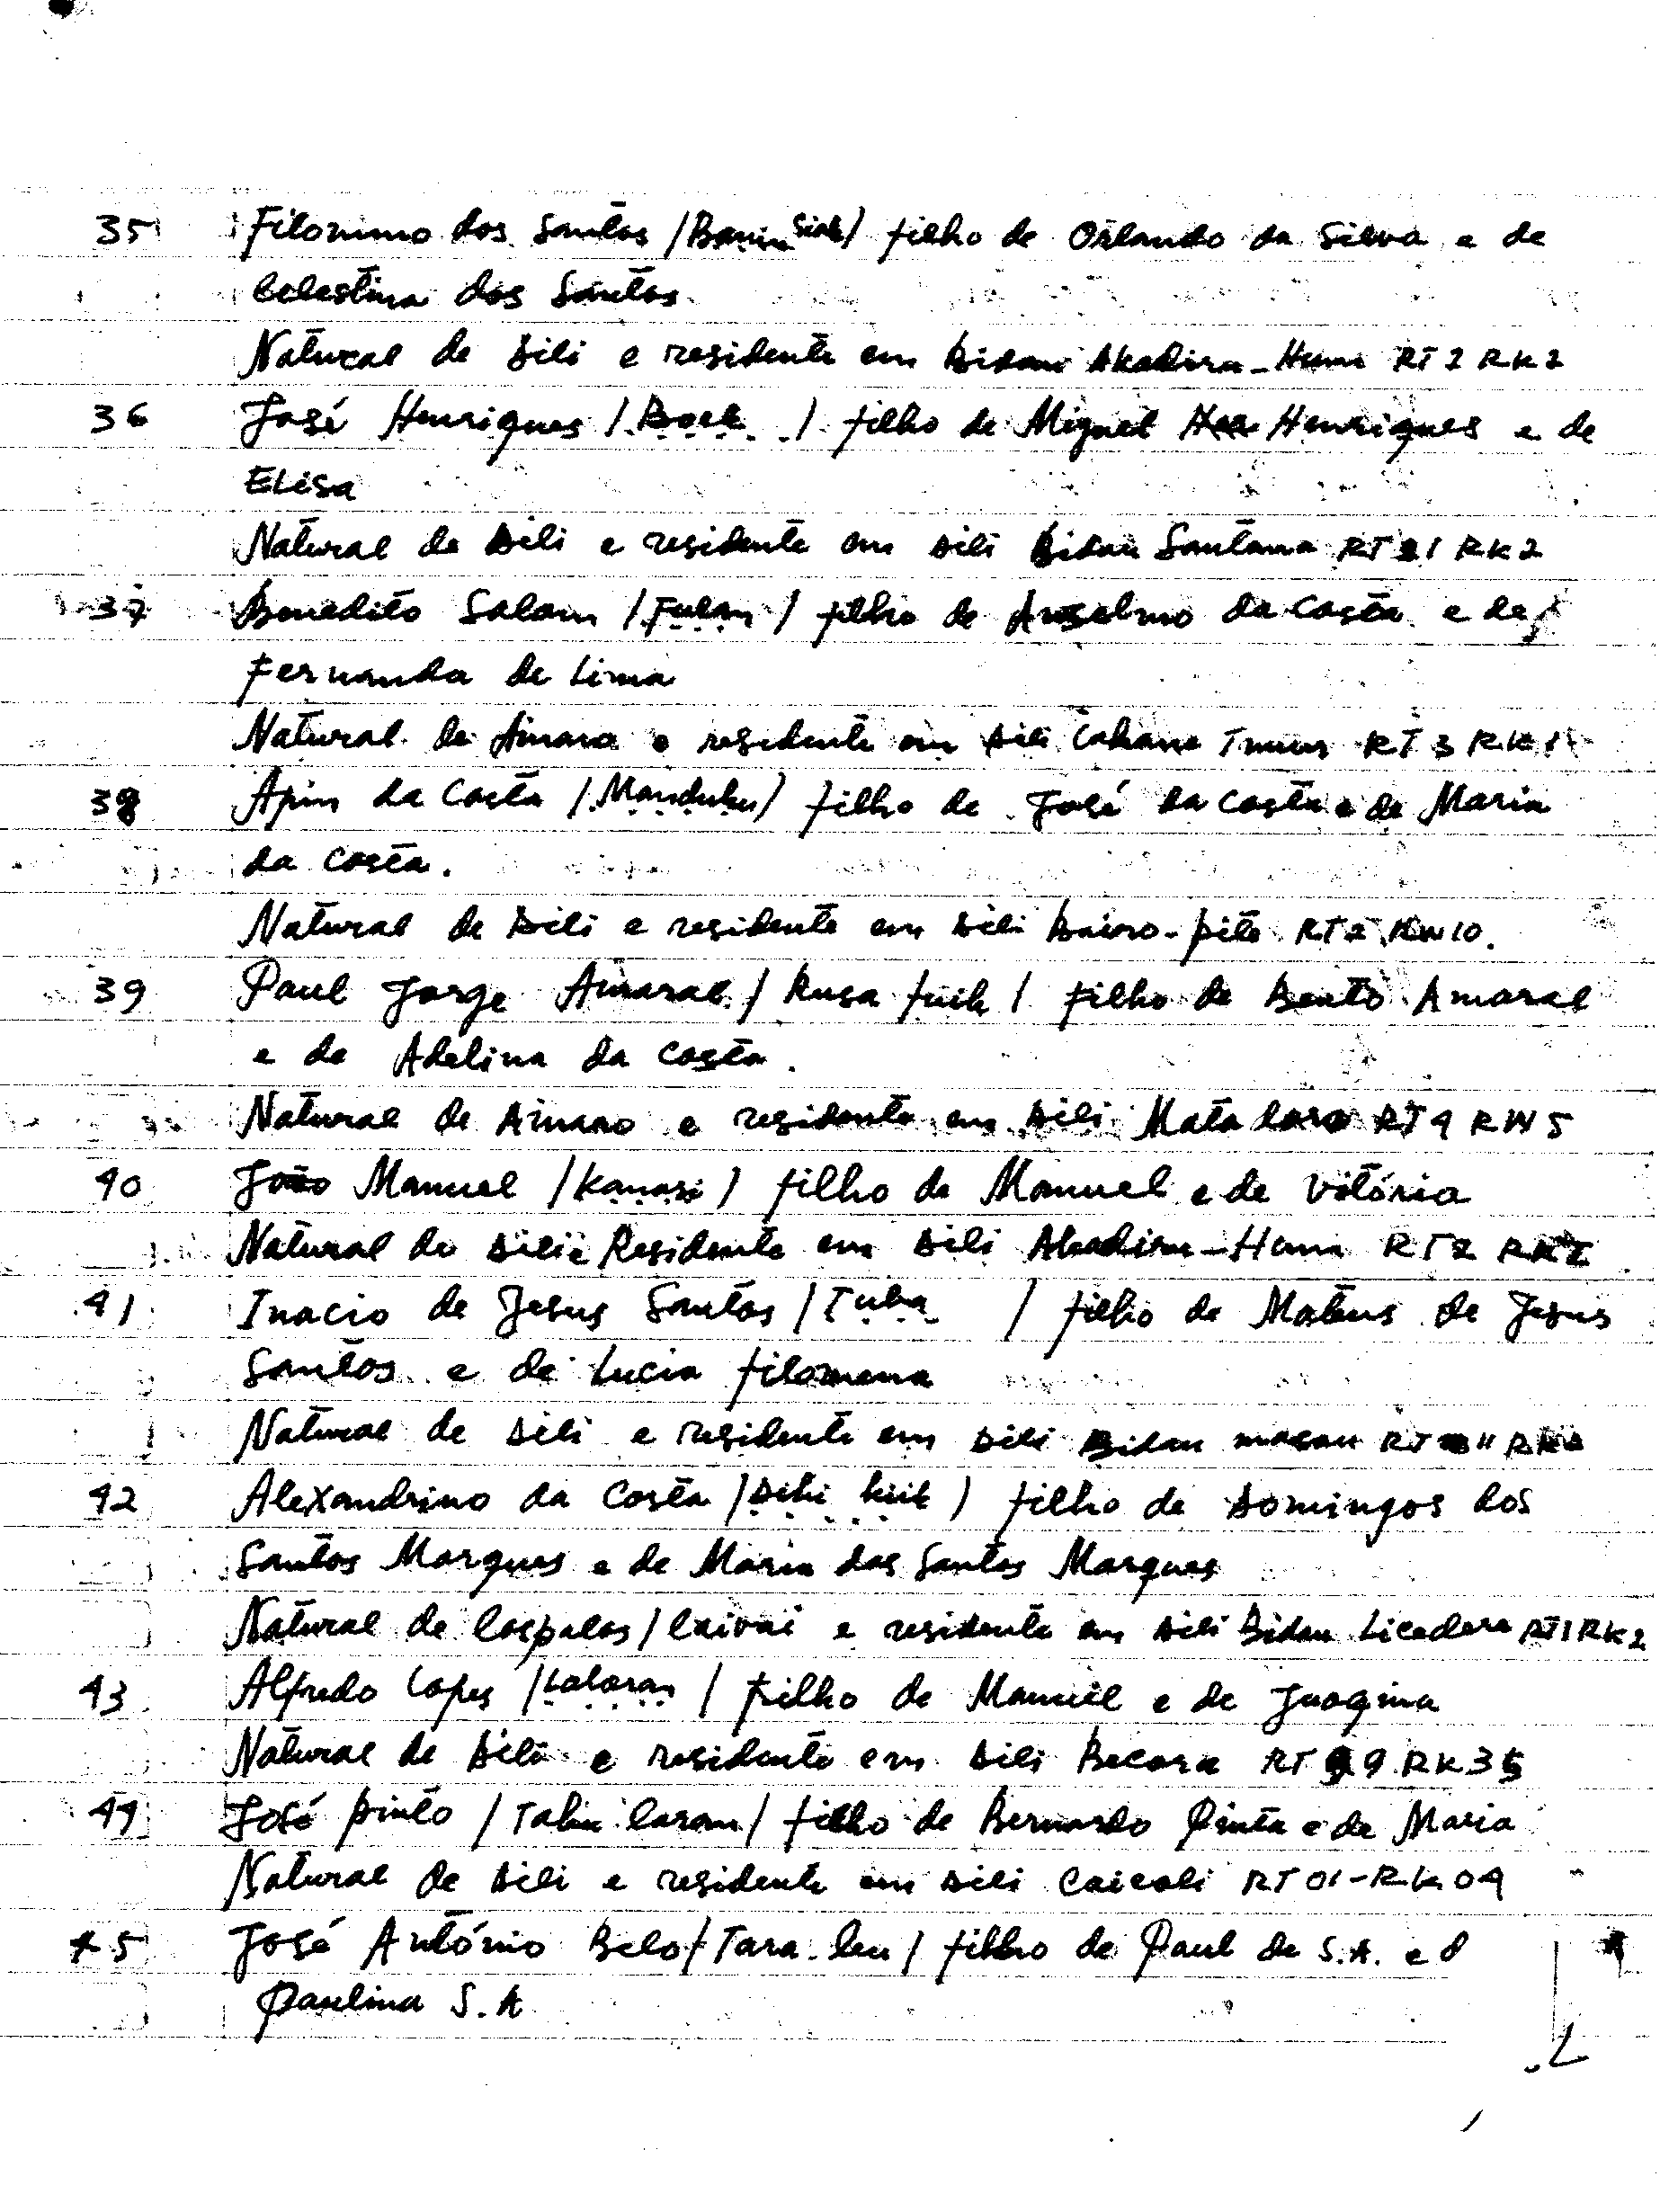 35 Filomino dos Santos /Bonin Siak/ filho de Orlando da Silva e de
Celestina dos Santos.
Natural de Dili e residente em Bidau Akadiru-Hun RT 2 RK 2
36 José Henriques / Boek / filho de Miguel Henriques e de
Elisa
Natural de Dili e residente em Dili Bidau Santana RT 21 RK 2
37 Benedito Salam / Fulan / filho de Anselmo da Costa e de
Fernanda de Lima
Natural de Ainaro e residente em Dili Lahane Timur RT 3 RK 1
38 Apin da Costa / Manduku / filho de José da Costa e de Maria
da Costa.
Natural de Dili e residente em Dili Bairo-Pite RT 2 RW 10.
39 Paul Jorge Amaral / Rusa fuik / filho de Bento Amaral
e de Adelina da Costa.
Natural de Ainaro e residente em Dili Mata RT 9 RW 5
40 João Manuel / Kanasi / filho de Manuel e de Vitória
Natural de Dili e Residente em Dili Akadiru-Hun RT 2 RK 2
41 Inacio de Jesus Santos / Tuba / filho de Mateus de Jesus
Santos e de Lucia Filomena
Natural de Dili e residente em Dili Bidau masau RT 11
42 Alexandrino da Costa / Diki kuik / filho de Domingos dos
Santos Marques e de Maria dos Santos Marques
Natural de Lospalos / Laivai e residente em Dili Bidau Licedere RT 1 RK 2
43 Alfredo Lopes / Lalaran / filho de Manuel e de Juaquina
Natural de Dili e residente em Dili Becora RT 9 RK 35
44 José Pinto / laran / filho de Bernardo Pinto e de Maria
Natural de Dili e residente em Dili Caicoli RT 01-RK 04
45 José António Belo / Tara leu / filho de Paul de S.A. e d
Paulina S.A